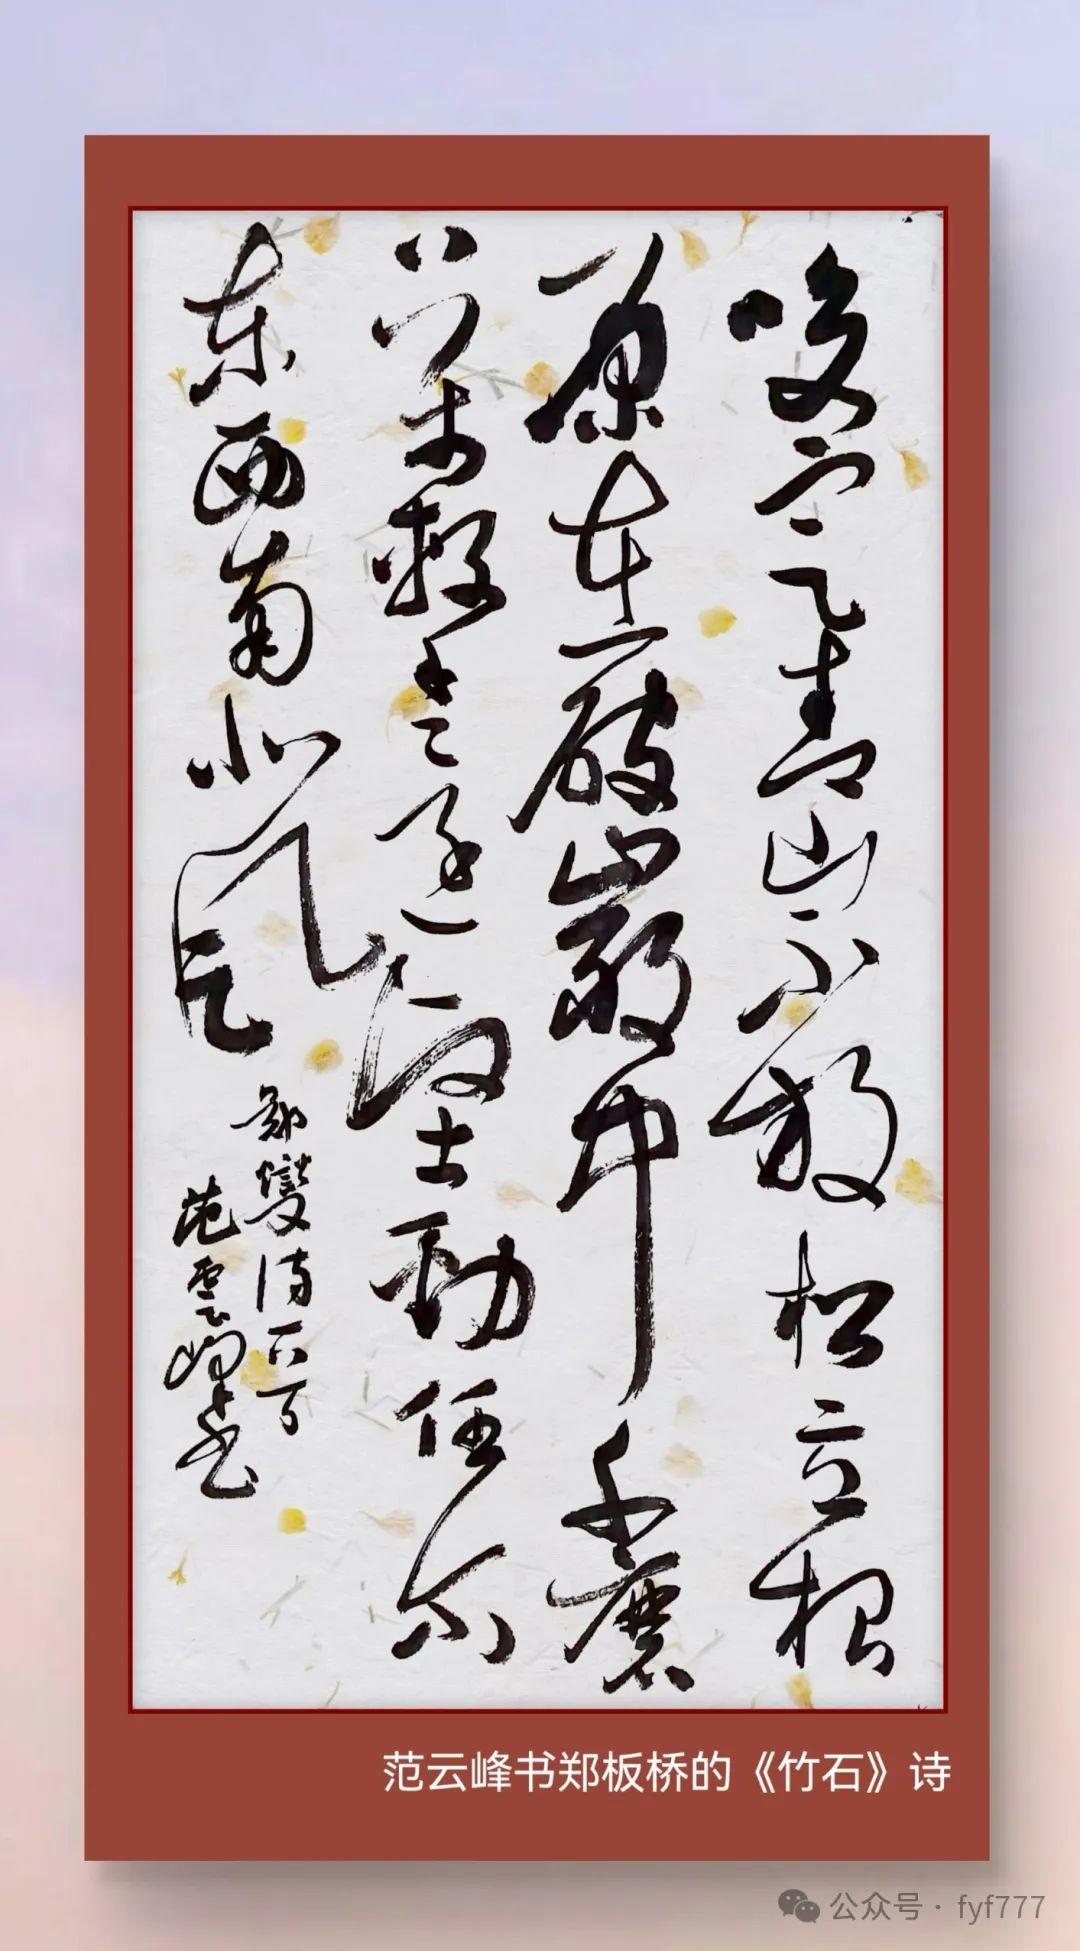 咬定青山不放松立根
原在破巖中千磨
萬擊還堅勁任尔
东西南北风
郑燮诗一首
范雲峰书
范云峰书郑板桥的《竹石》诗
公众号·fyf777